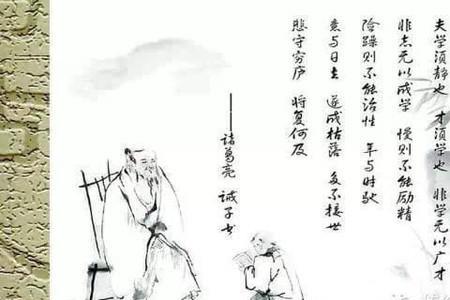 夫学须静也 才须学也 非学无以广才
非志无以成学 慢则不能励精
险躁则不能治性 年与时驰
意与日去 遂成枯落 多不接世
悲守穷庐 将复何及
——诸葛亮 诫子书